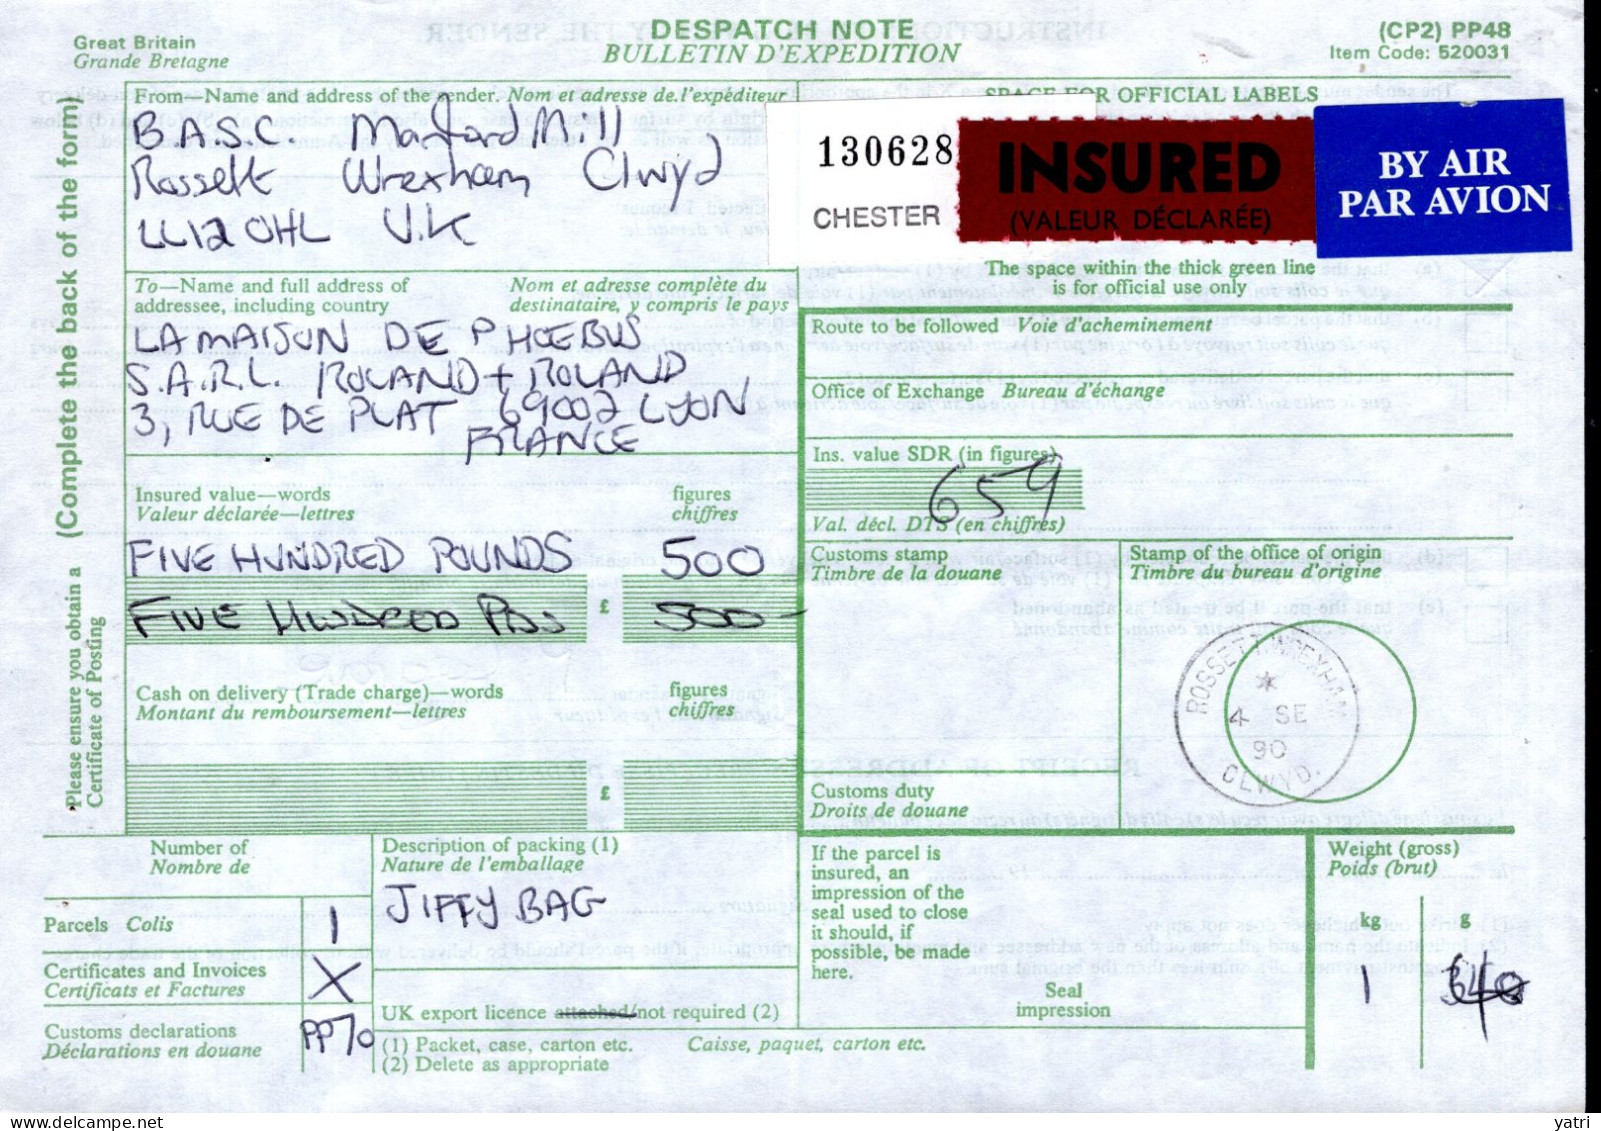 DESPATCH NOTE
BULLETIN D'EXPEDITION
Great Britain
Grande Bretagne
(CP2) PP48
Item Code: 520031
(Complete the back of the form)
Please ensure you obtain a
Certificate of Posting
From—Name and address of the sender. Nom et adresse de l'expéditeur
B.A.S.C. Marford Mill
Rossett Wrexham Clwyd
LL12 0HL U.K
SPACE FOR OFFICIAL LABELS
130628
CHESTER
INSURED
(VALEUR DÉCLARÉE)
BY AIR
PAR AVION
The space within the thick green line
is for official use only
To—Name and full address of
addressee, including country
Nom et adresse complète du
destinataire, y compris le pays
LA MAISON DE PHOEBUS
S.A.R.L. ROLAND + ROLAND
3, RUE DE PLAT 69002 LYON,
FRANCE
Route to be followed Voie d'acheminement
Office of Exchange Bureau d'échange
Ins. value SDR (in figures)
659
Val. décl. DTS (en chiffres)
Insured value—words
Valeur déclarée—lettres
figures
chiffres
FIVE HUNDRED POUNDS 500
FIVE HUNDRED £ 500 -
Customs stamp
Timbre de la douane
Stamp of the office of origin
Timbre du bureau d'origine
ROSSETT. WREXHAM
4 SE
90
CLWYD.
Cash on delivery (Trade charge)—words
Montant du remboursement—lettres
figures
chiffres
£
Customs duty
Droits de douane
Number of
Nombre de
Parcels Colis 1
Certificates and Invoices
Certificats et Factures X
Customs declarations
Déclarations en douane PP70
Description of packing (1)
Nature de l'emballage
JIFFY BAG
UK export licence attached/not required (2)
(1) Packet, case, carton etc. Caisse, paquet, carton etc.
(2) Delete as appropriate
If the parcel is
insured, an
impression of the
seal used to close
it should, if
possible, be made
here.
Seal
impression
Weight (gross)
Poids (brut)
kg g
1
yatri